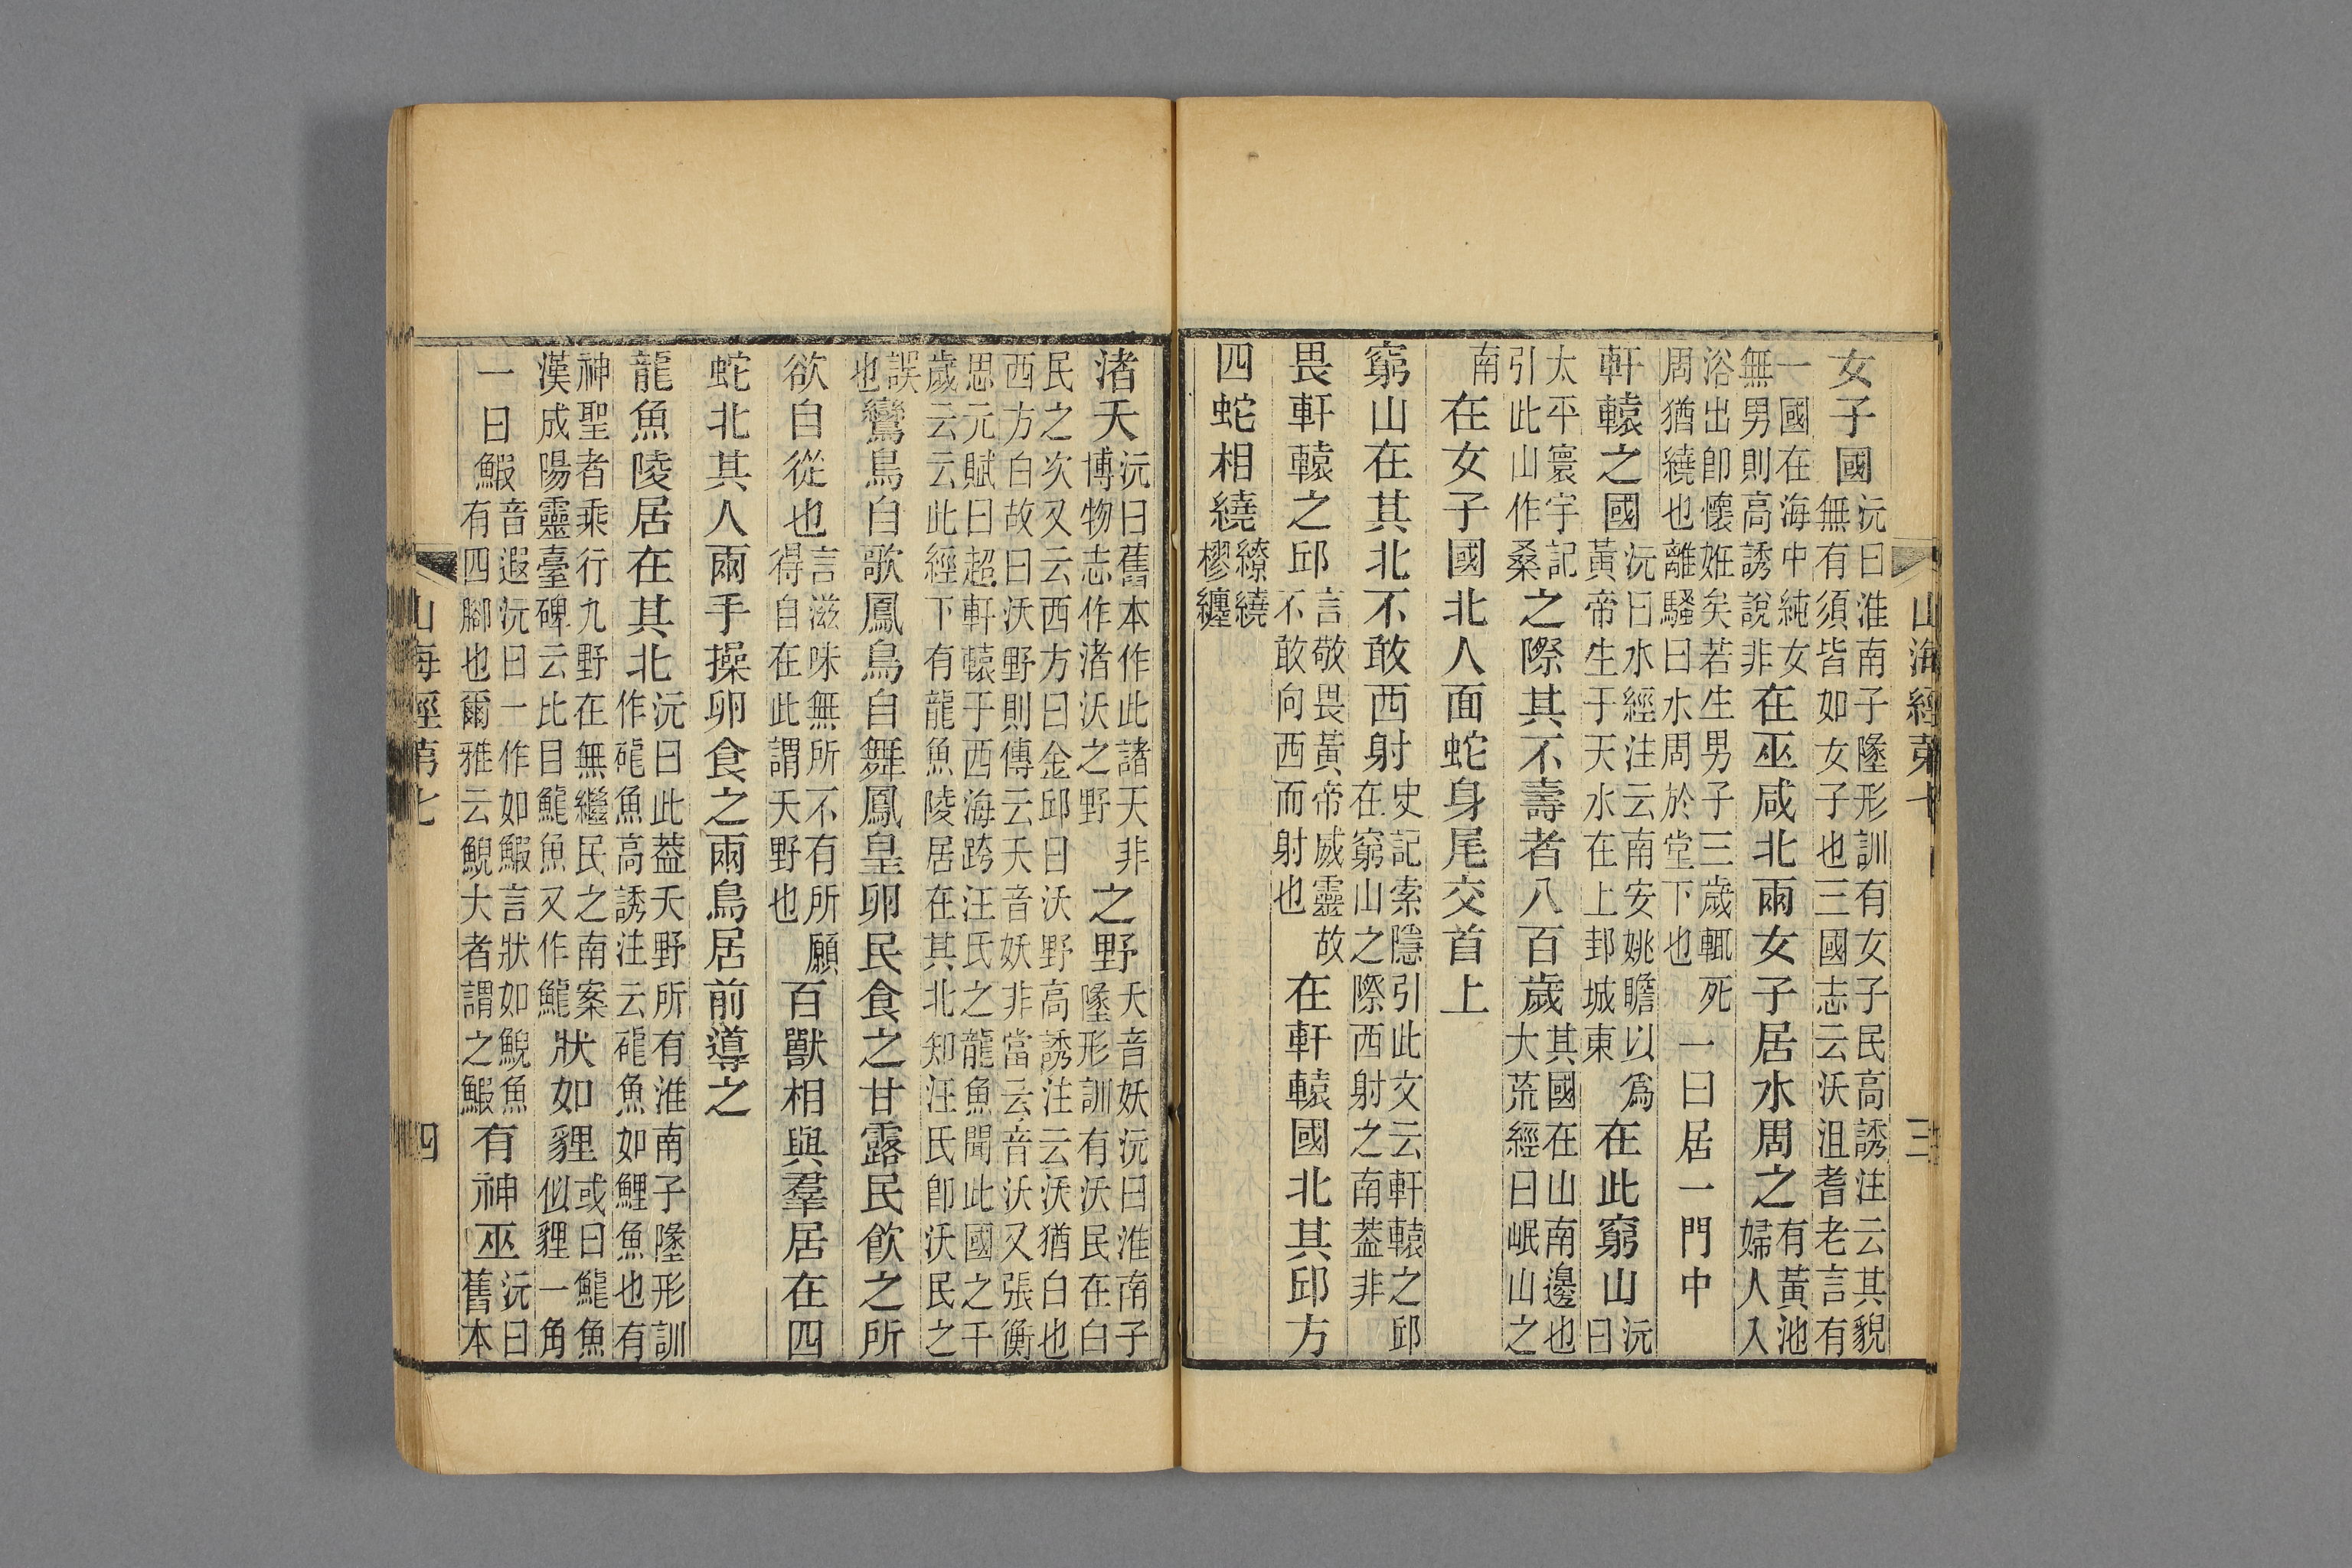 山海經苐七 三
女子國沅曰淮南子墬形訓有女子民高誘注云其貌無有須皆如女子也三國志云沃沮耆老言有
一國在海中純女無男則高誘說非在巫咸北兩女子居水周之有黃池婦人入
浴出卽懷姙矣若生男子三歲輒死周猶繞也離騷曰水周於堂下也一曰居一門中
軒轅之國沅曰水經注云南安姚瞻以爲黃帝生于天水在上邽城東在此窮山沅曰
太平寰宇記引此山作桑之際其不壽者八百歲其國在山南邊也大荒經曰岷山之
南在女子國北人面蛇身尾交首上
窮山在其北不敢西射史記索隱引此文云軒轅之邱在窮山之際西射之南葢非
畏軒轅之邱言敬畏黃帝威靈故不敢向西而射也在軒轅國北其邱方
四蛇相繞繚繞樛纏
渚夭沅曰舊本作此諸天非博物志作渚沃之野之野夭音妖沅曰淮南子墬形訓有沃民在白
民之次又云西方曰金邱曰沃野高誘注云沃猶白也西方白故曰沃野則傳云夭音妖非當云音沃又張衡
思元賦曰超軒轅于西海跨汪氏之龍魚聞此國之千歲云云此經下有龍魚陵居在其北知汪氏卽沃民之
誤也鸞鳥自歌鳳鳥自舞鳳皇卵民食之甘露民飮之所
欲自從也言滋味無所不有所願得自在此謂夭野也百獸相與羣居在四
蛇北其人兩手操卵食之兩鳥居前導之
龍魚陵居在其北沅曰此葢夭野所有淮南子墬形訓作硥魚高誘注云硥魚如鯉魚也有
神聖者乘行九野在無繼民之南案漢成陽靈臺碑云比目魚又作狀如貍或曰魚似貍一角
一曰鰕音遐沅曰一作如鰕言狀如鯢魚有四腳也爾雅云鯢大者謂之鰕有神巫沅曰舊本
山海經苐七 四